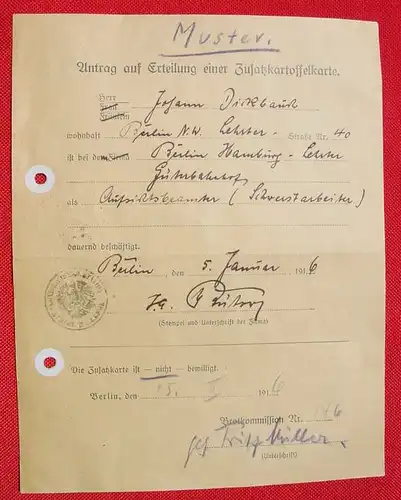 Muster.
Antrag auf Erteilung einer Zusatzkartoffelkarte.
Herr
Frau
Fräulein
Johann Dirkbaust
wohnhaft Berlin N.W. Lehrter- Straße Nr. 40
ist bei dem Firma Berlin Hamburg-Lehrter
Güterbahnhof
als Aufsichtsbeamter (Schwerstarbeiter)
dauernd beschäftigt.
Berlin, den 5. Januar 1916
(Stempel und Unterschrift der Firma)
Die Zusatzkarte ist — nicht — bewilligt.
Berlin, den 15. 1916
Brotkommission Nr. 146
gez Fritz Müller.
(Unterschrift)